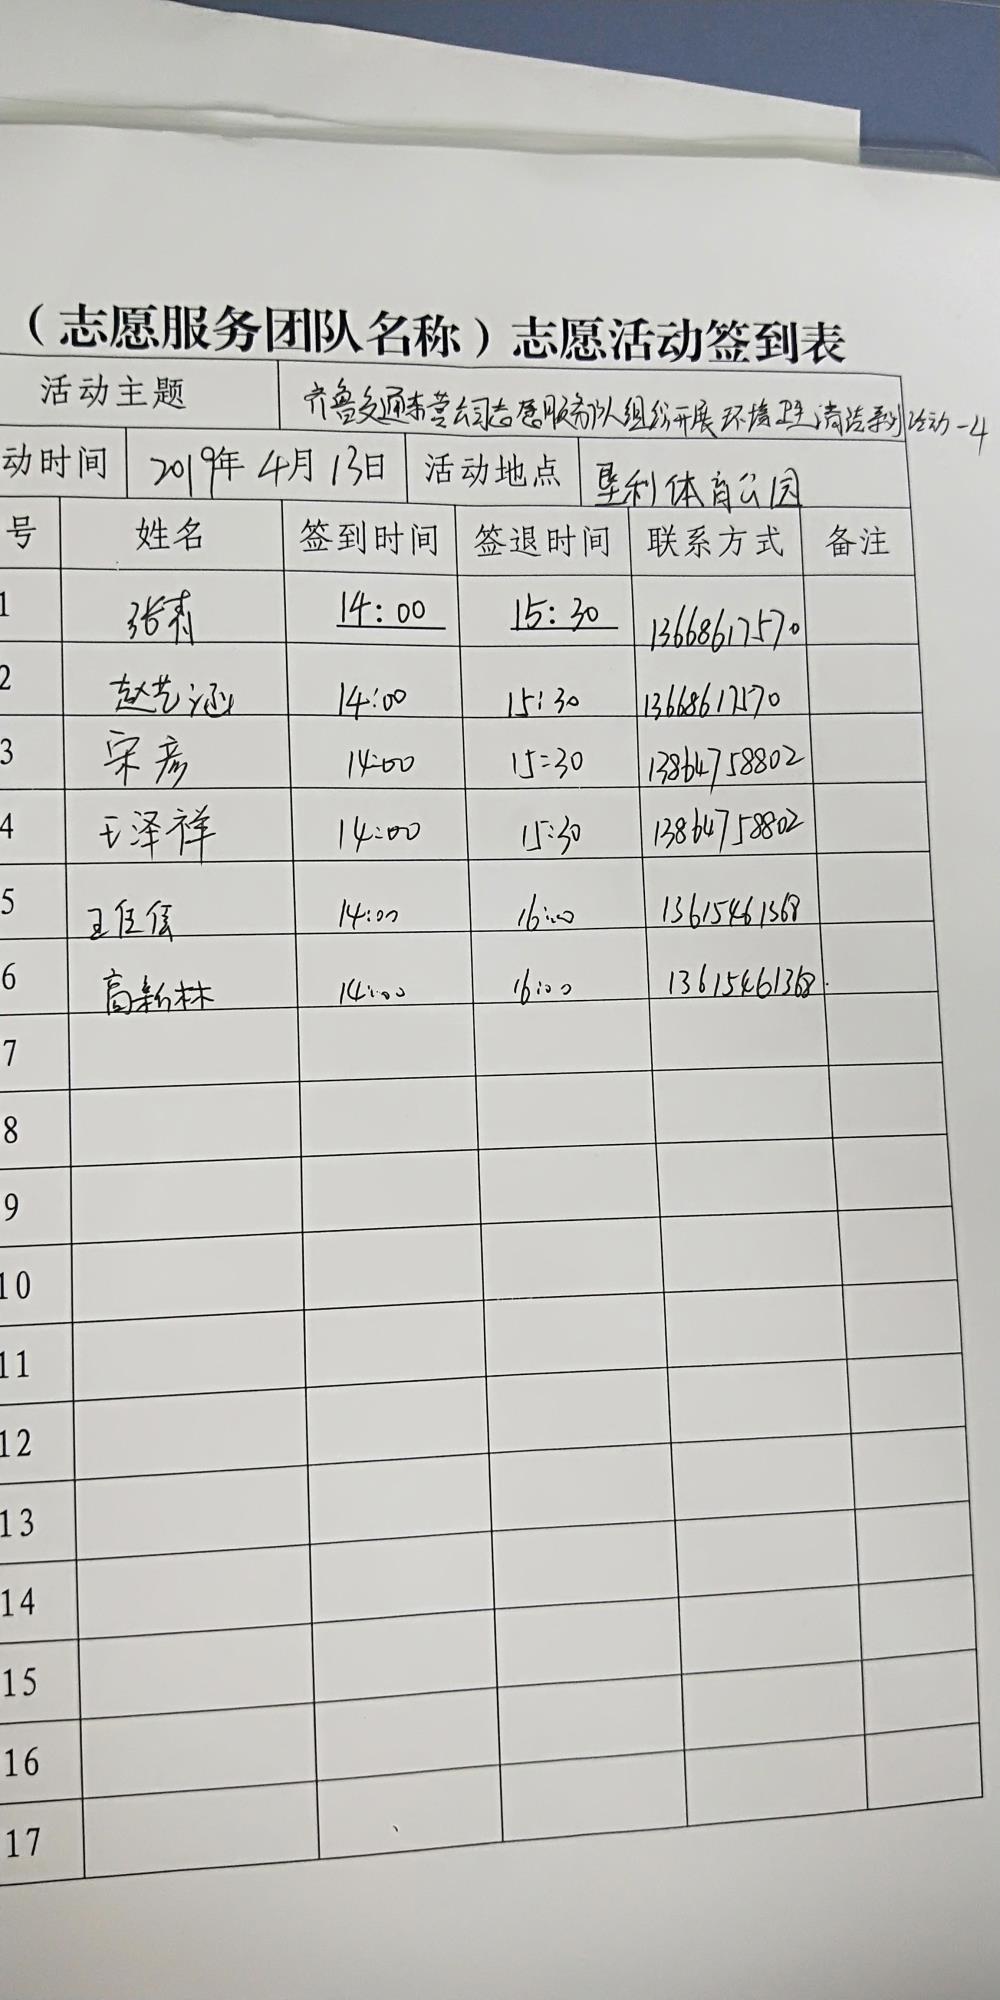 （志愿服务团队名称）志愿活动签到表
活动主题 齐鲁交通东营公司志愿服务队组织开展环境卫生清洁系列活动-4
动时间 2019年4月13日 活动地点 垦利体育公园
号 姓名 签到时间 签退时间 联系方式 备注
1 张青 14:00 15:30 13668617570
2 赵艺涵 14:00 15:30 13668617570
3 宋彦 14:00 15:30 13864758802
4 王泽祥 14:00 15:30 13864758802
5 14:00 16:00 13615461368
6 高新林 14:00 16:00 13615461368
7
8
9
10
11
12
13
14
15
16
17